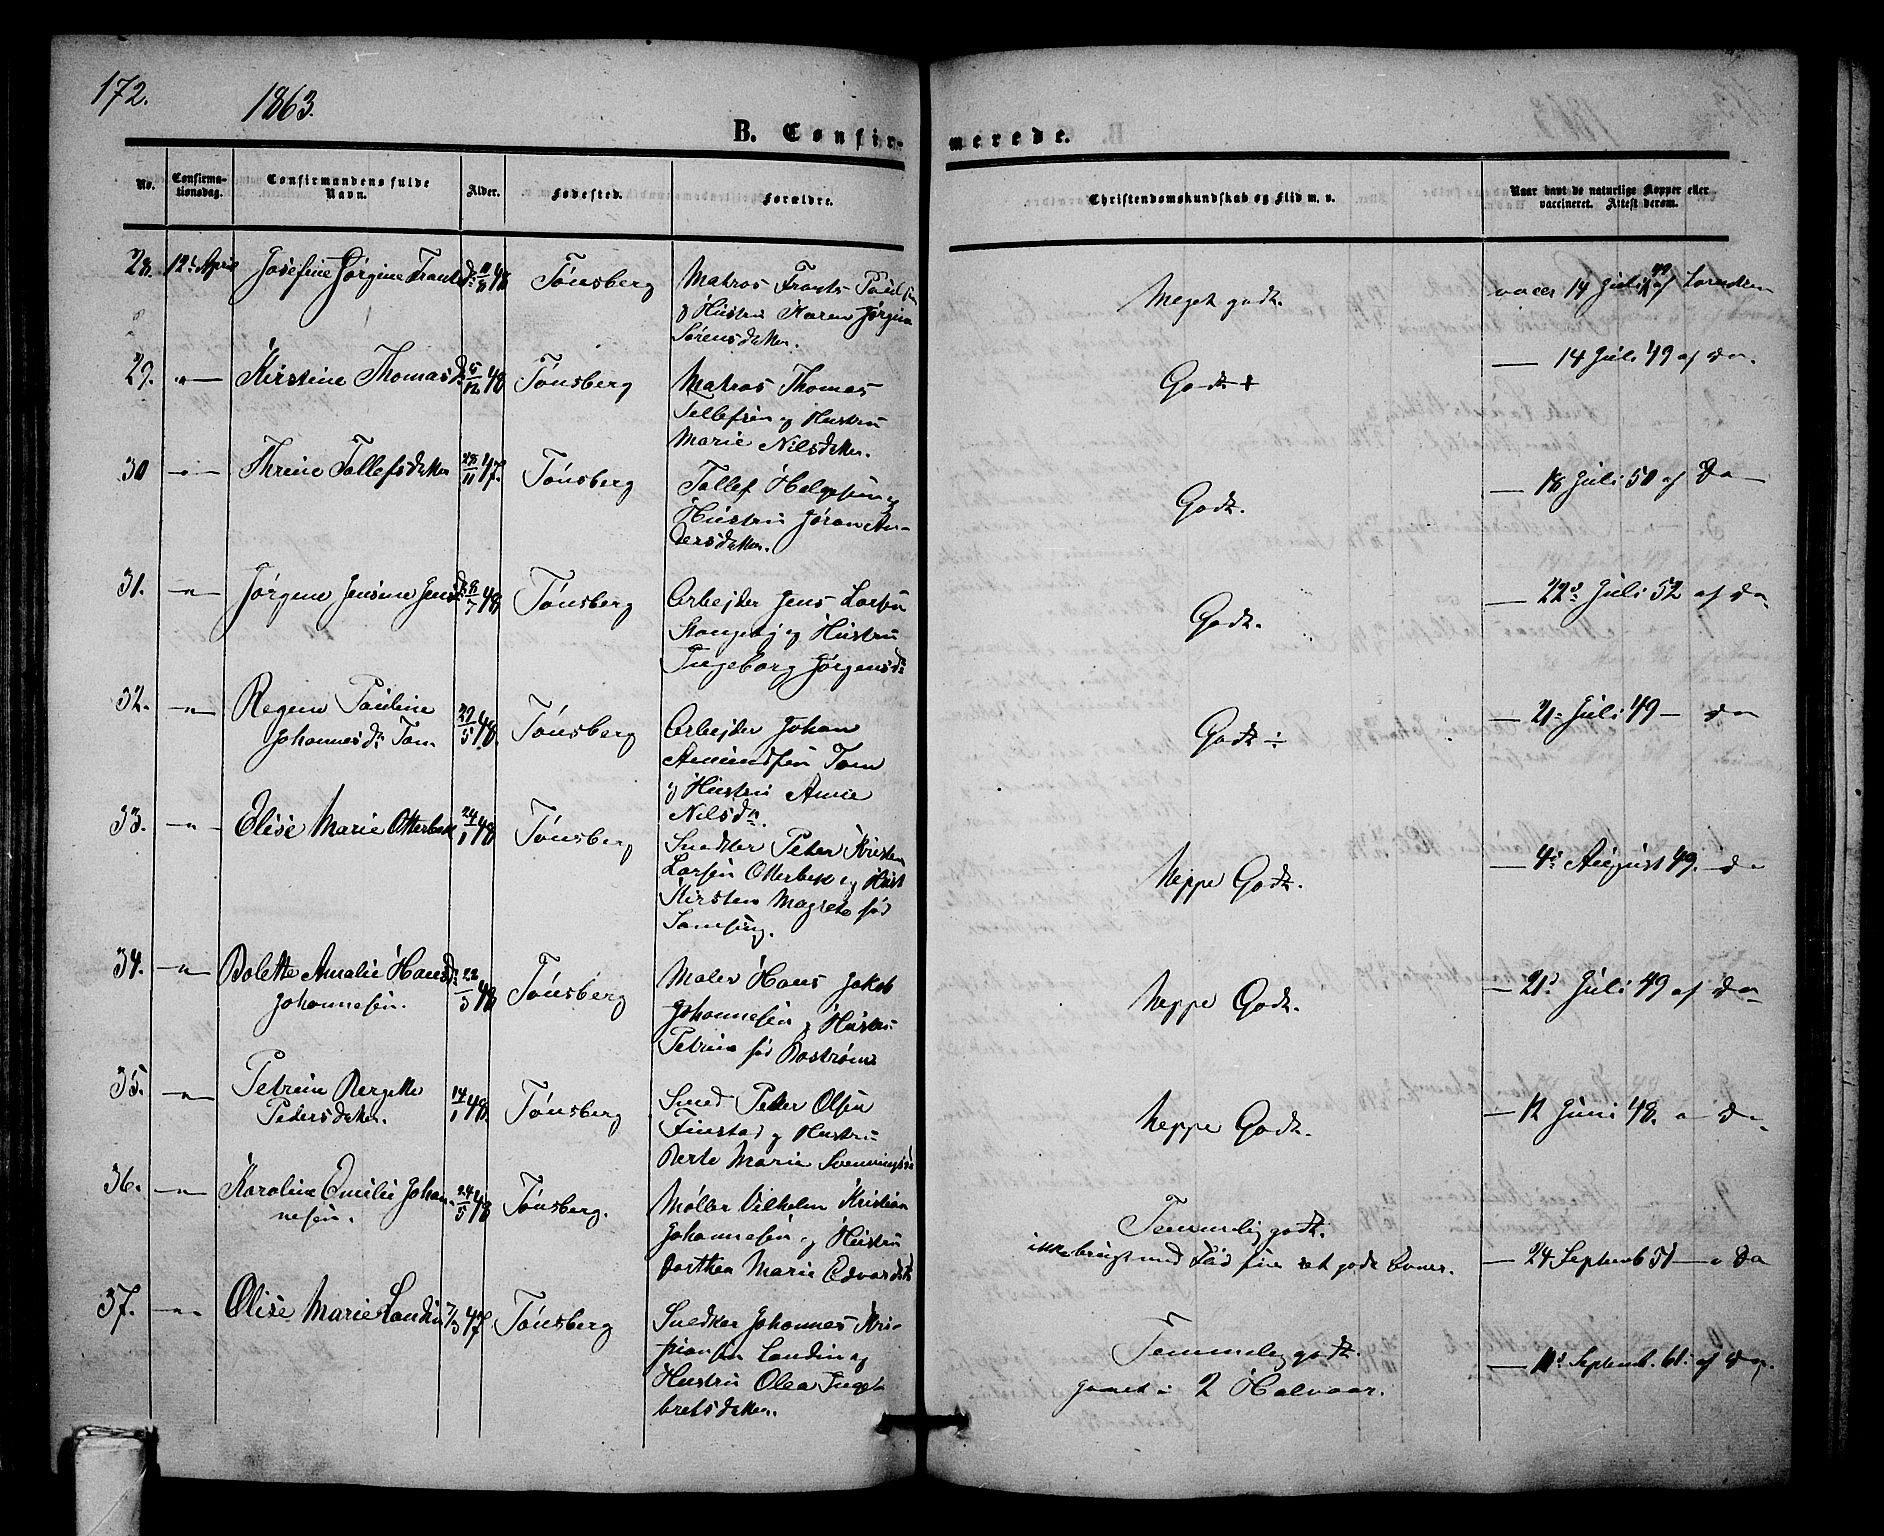 172.
1863.
B. Confirmerede.
No.
Confirmationsdag.
Confirmandens fulde Navn.
Alder.
Fødested.
Forældre.
Christendomskundskab og Flid m. v.
Naar havt de naturlige Kopper eller vaccineret. Attest derom.
28. 12. April Josefine Jørgine Frants D: 48 Tønsberg
Matros Frants Paulsen
og Hustru Karen Jørgine
Sørensdatter.
Meget godt.
vacc 14 Juli 49 af
29. " Kirstine Thomasd 5/12 48 Tønsberg
Matros Thomas
Tellefsen og Hustru
Marie Nilsdatter.
Godt +
— 14 Juli 49 af Do.
30 " Threine Tollefsdatter 28/11 47. Tønsberg
Tollef Helgesen og
Hustru Jøran An-
dersdatter.
Godt.
— 18 Juli 50 af Do —
31. " Jørgine Jensine Jensd 48 Tønsberg
Arbejder Jens Larsen
og Hustru
Ingeborg Jørgensdr
Godt.
— 22d Juli 52 af Do
32. " Regine Pauline
Johannesdr Tom 29/5 48. Tønsberg
Arbejder Johan
Amundsen Tom
og Hustru Anne
Nilsdr.
Godt ÷
— 21. Juli 49 — Do
33. " Elise Marie Otterbek 24/1 48 Tønsberg
Snedker Peter Kristen
Larsen Otterbek og Hust
Kirsten Magrete fød
Samsing.
Neppe Godt.
— 4: August 49. — Do
34. " Bolette Amalie Hansdr
Johannesen. 22/5 48 Tønsberg
Maler Hans Jakob
Johannesen og Hustru
Petrine fød Bostrøm
Neppe Godt.
— 21. Juli 49 af Do
35. " Petrine Bergette
Pedersdatter. 14/1 48. Tønsberg
Smed Peder Olsen
Finstad og Hustru
Berte Marie Svenningsd
Neppe Godt.
— 12 Juni 48. " Do
36. " Karoline Emilie Johan-
nesen. 24/5 48 Tønsberg.
Møller Vilhelm Kristian
Johannesen og Hustru
Dorthea Marie Edvardsdr
Temmelig godt.
ikke brugt med Flid sine ret gode Evner.
— 24 Septemb 51 — " Do
37. " Elise Marie Landin 7/3 47 Tønsberg
Snedker Johannes Kri-
stiansen Landin og
Hustru Olea Inge-
bretsdatter.
Temmelig godt.
gaaet i 2 Halvaar.
— 11. Septemb. 61. af Do.